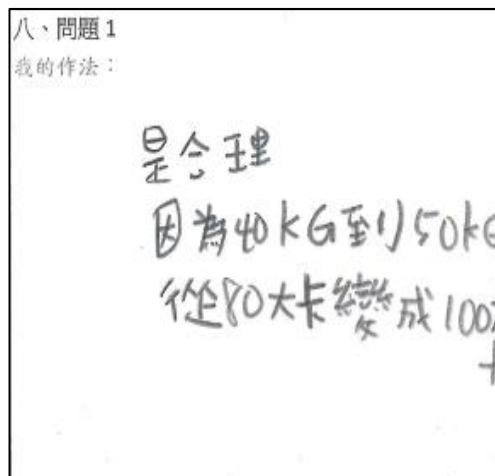 八、問題 1
我的作法：
是合理
因為40kG到50kG
從80大卡變成100